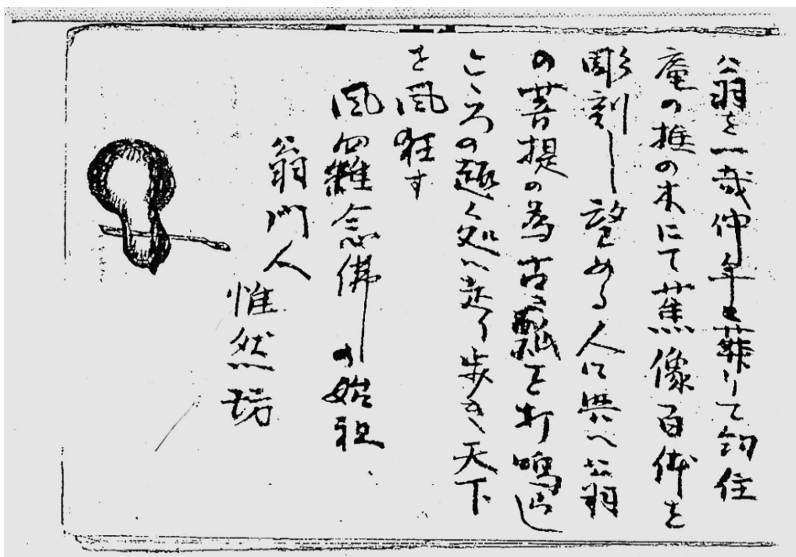 翁を葬りて幻住
庵の椎の木にて蕉像百体を
彫刻し望める人に與へ公翁
の菩提の為古き瓢を打鳴らし
こころの趣く処へ走り歩き天下
を風狂す
風羅念佛の始祖、
翁門人
惟然坊